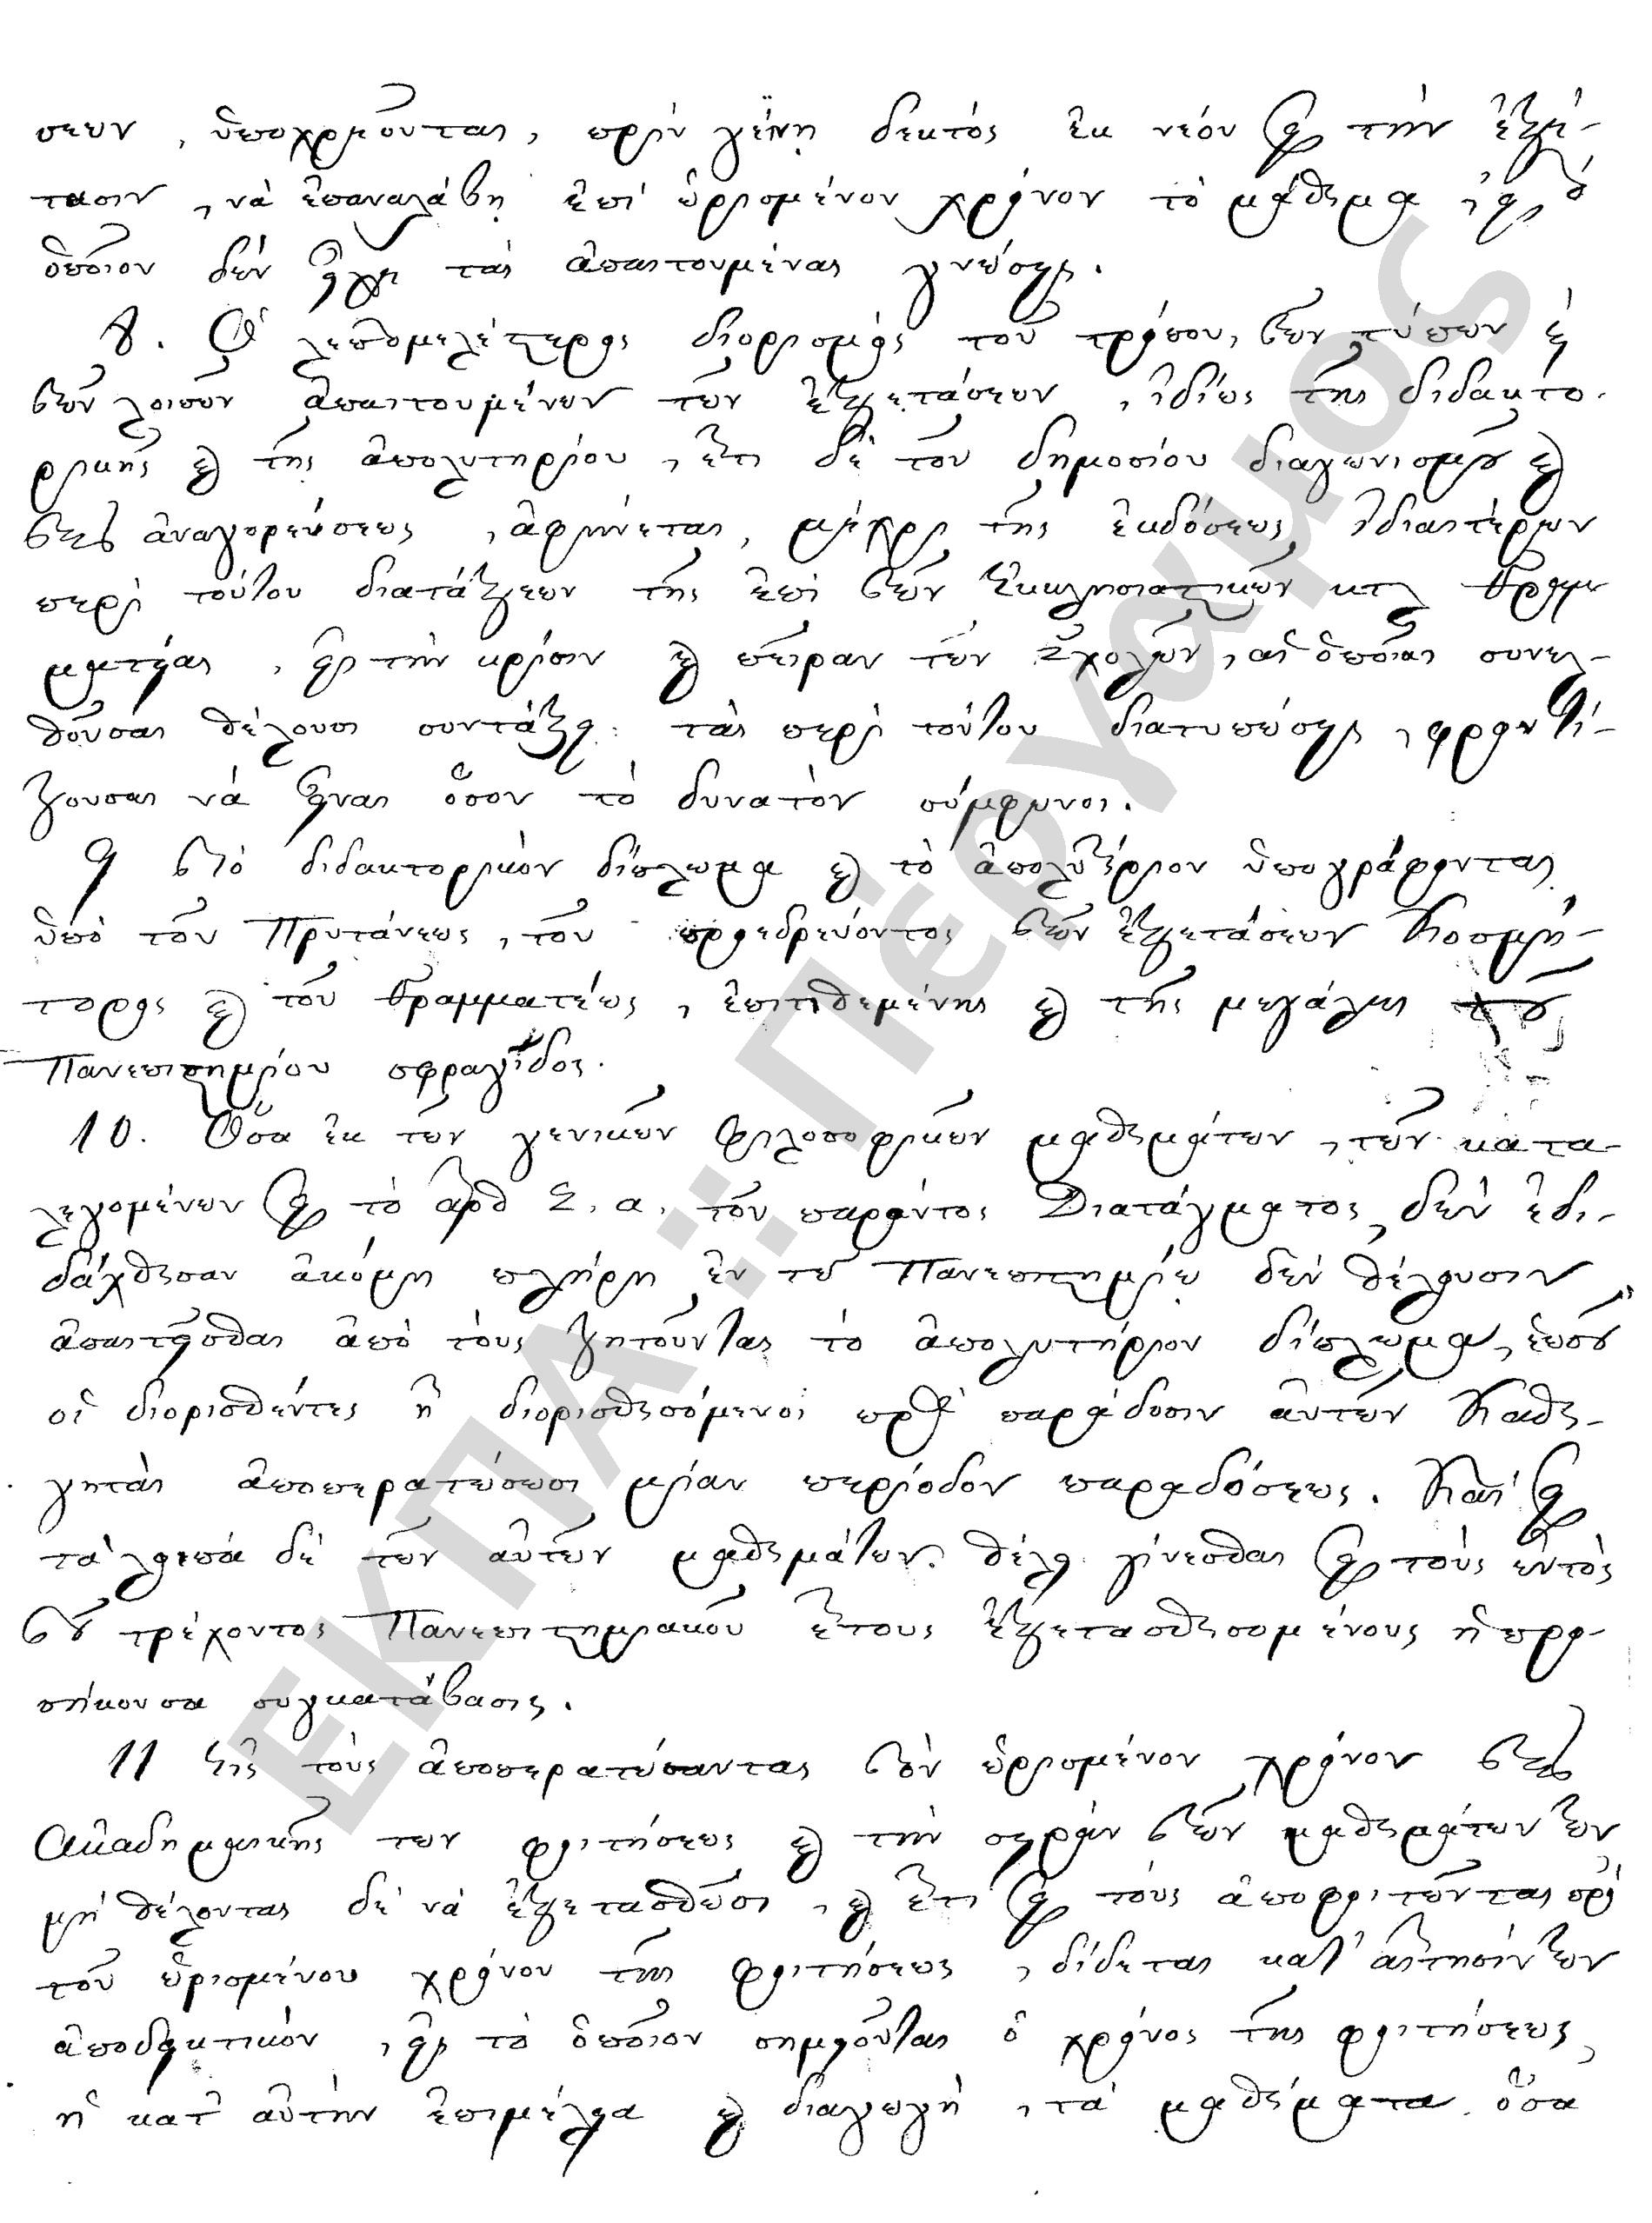 σεων, ὑποχρεοῦται, πρὶν γείνῃ δεκτὸς ἐκ νέου εἰς τὴν ἐξέ-
τασιν, νὰ ἐπαναλάβῃ ἐπὶ ὡρισμένον χρόνον τὸ μάθημα, εἰς τὸ
ὁποῖον δὲν ἔχει τὰς ἀπαιτουμένας γνώσεις.
8. Ὁ λεπτομελέστερος διορισμὸς τοῦ τρόπου, τῶν τύπων καὶ
τῶν λοιπῶν ἀπαιτουμένων τῶν ἐξετάσεων, ἰδίως τῆς διδακτο-
ρικῆς καὶ τῆς ἀπολυτηρίου, ἔτι δὲ τοῦ δημοσίου διαγωνισμοῦ καὶ
τῆς ἀναγορεύσεως, ἀφίνεται, μέχρι τῆς ἐκδόσεως ἰδιαιτέρων
περὶ τούτου διατάξεων τῆς ἐπὶ τῶν Ἐκκλησιαστικῶν κτλ Γραμ
ματείας, εἰς τὴν κρίσιν καὶ πεῖραν τῶν Σχολῶν, αἱ ὁποῖαι συνελ-
θοῦσαι θέλουσι συντάξει τὰς περὶ τούτου διατυπώσεις, φροντί-
ζουσαι νὰ ἦναι ὅσον τὸ δυνατὸν σύμφωνοι.
9 Τὸ διδακτορικὸν δίπλωμα καὶ τὸ ἀπολυτήριον ὑπογράφονται
ὑπὸ τοῦ Πρυτάνεως, τοῦ προεδρεύοντος τῶν ἐξετάσεων Κοσμή-
τορος καὶ τοῦ Γραμματέως, ἐπιτιθεμένης καὶ τῆς μεγάλης τοῦ
Πανεπιστημίου σφραγῖδος.
10. Ὅσα ἐκ τῶν γενικῶν φιλοσοφικῶν μαθημάτων, τῶν κατα-
λεγομένων εἰς τὸ ἄρθ 2. α. τοῦ παρόντος Διατάγματος, δὲν ἐδι-
δάχθησαν ἀκόμη πλήρη ἐν τῷ Πανεπιστημίῳ δὲν θέλουσιν
ἀπαιτεῖσθαι ἀπὸ τοὺς ζητοῦντας τὸ ἀπολυτήριον δίπλωμα, ἑωσοῦ
οἱ διορισθέντες ἢ διορισθησόμενοι πρὸς παράδοσιν αὐτῶν Καθη-
γηταὶ ἀποπερατώσωσι μίαν περίοδον παραδόσεως. Καὶ εἰς
τὰ λοιπὰ δὲ τῶν αὐτῶν μαθημάτων θέλει γίνεσθαι εἰς τοὺς ἐντὸς
τοῦ τρέχοντος Πανεπιστημιακοῦ ἔτους ἐξετασθησομένους ἡ προ-
σήκουσα συγκατάβασις.
11 Εἰς τοὺς ἀποπερατώσαντας τὸν ὡρισμένον χρόνον τῆς
Ἀκαδημαϊκῆς των φοιτήσεως καὶ τὴν σειρὰν τῶν μαθημάτων των
μὴ θέλοντας δὲ νὰ ἐξετασθῶσι, καὶ ἔτι εἰς τοὺς ἀποφοιτῶντας πρὸ
τοῦ ὡρισμένου χρόνου τῆς φοιτήσεως, δίδεται κατ' αἴτησίν των
ἀποδεικτικὸν, εἰς τὸ ὁποῖον σημειοῦται ὁ χρόνος τῆς φοιτήσεως,
ἡ κατ' αὐτὴν ἐπιμέλεια καὶ διαγωγὴ, τὰ μαθήματα ὅσα
ΕΚΠΑ :: Πέργαμος